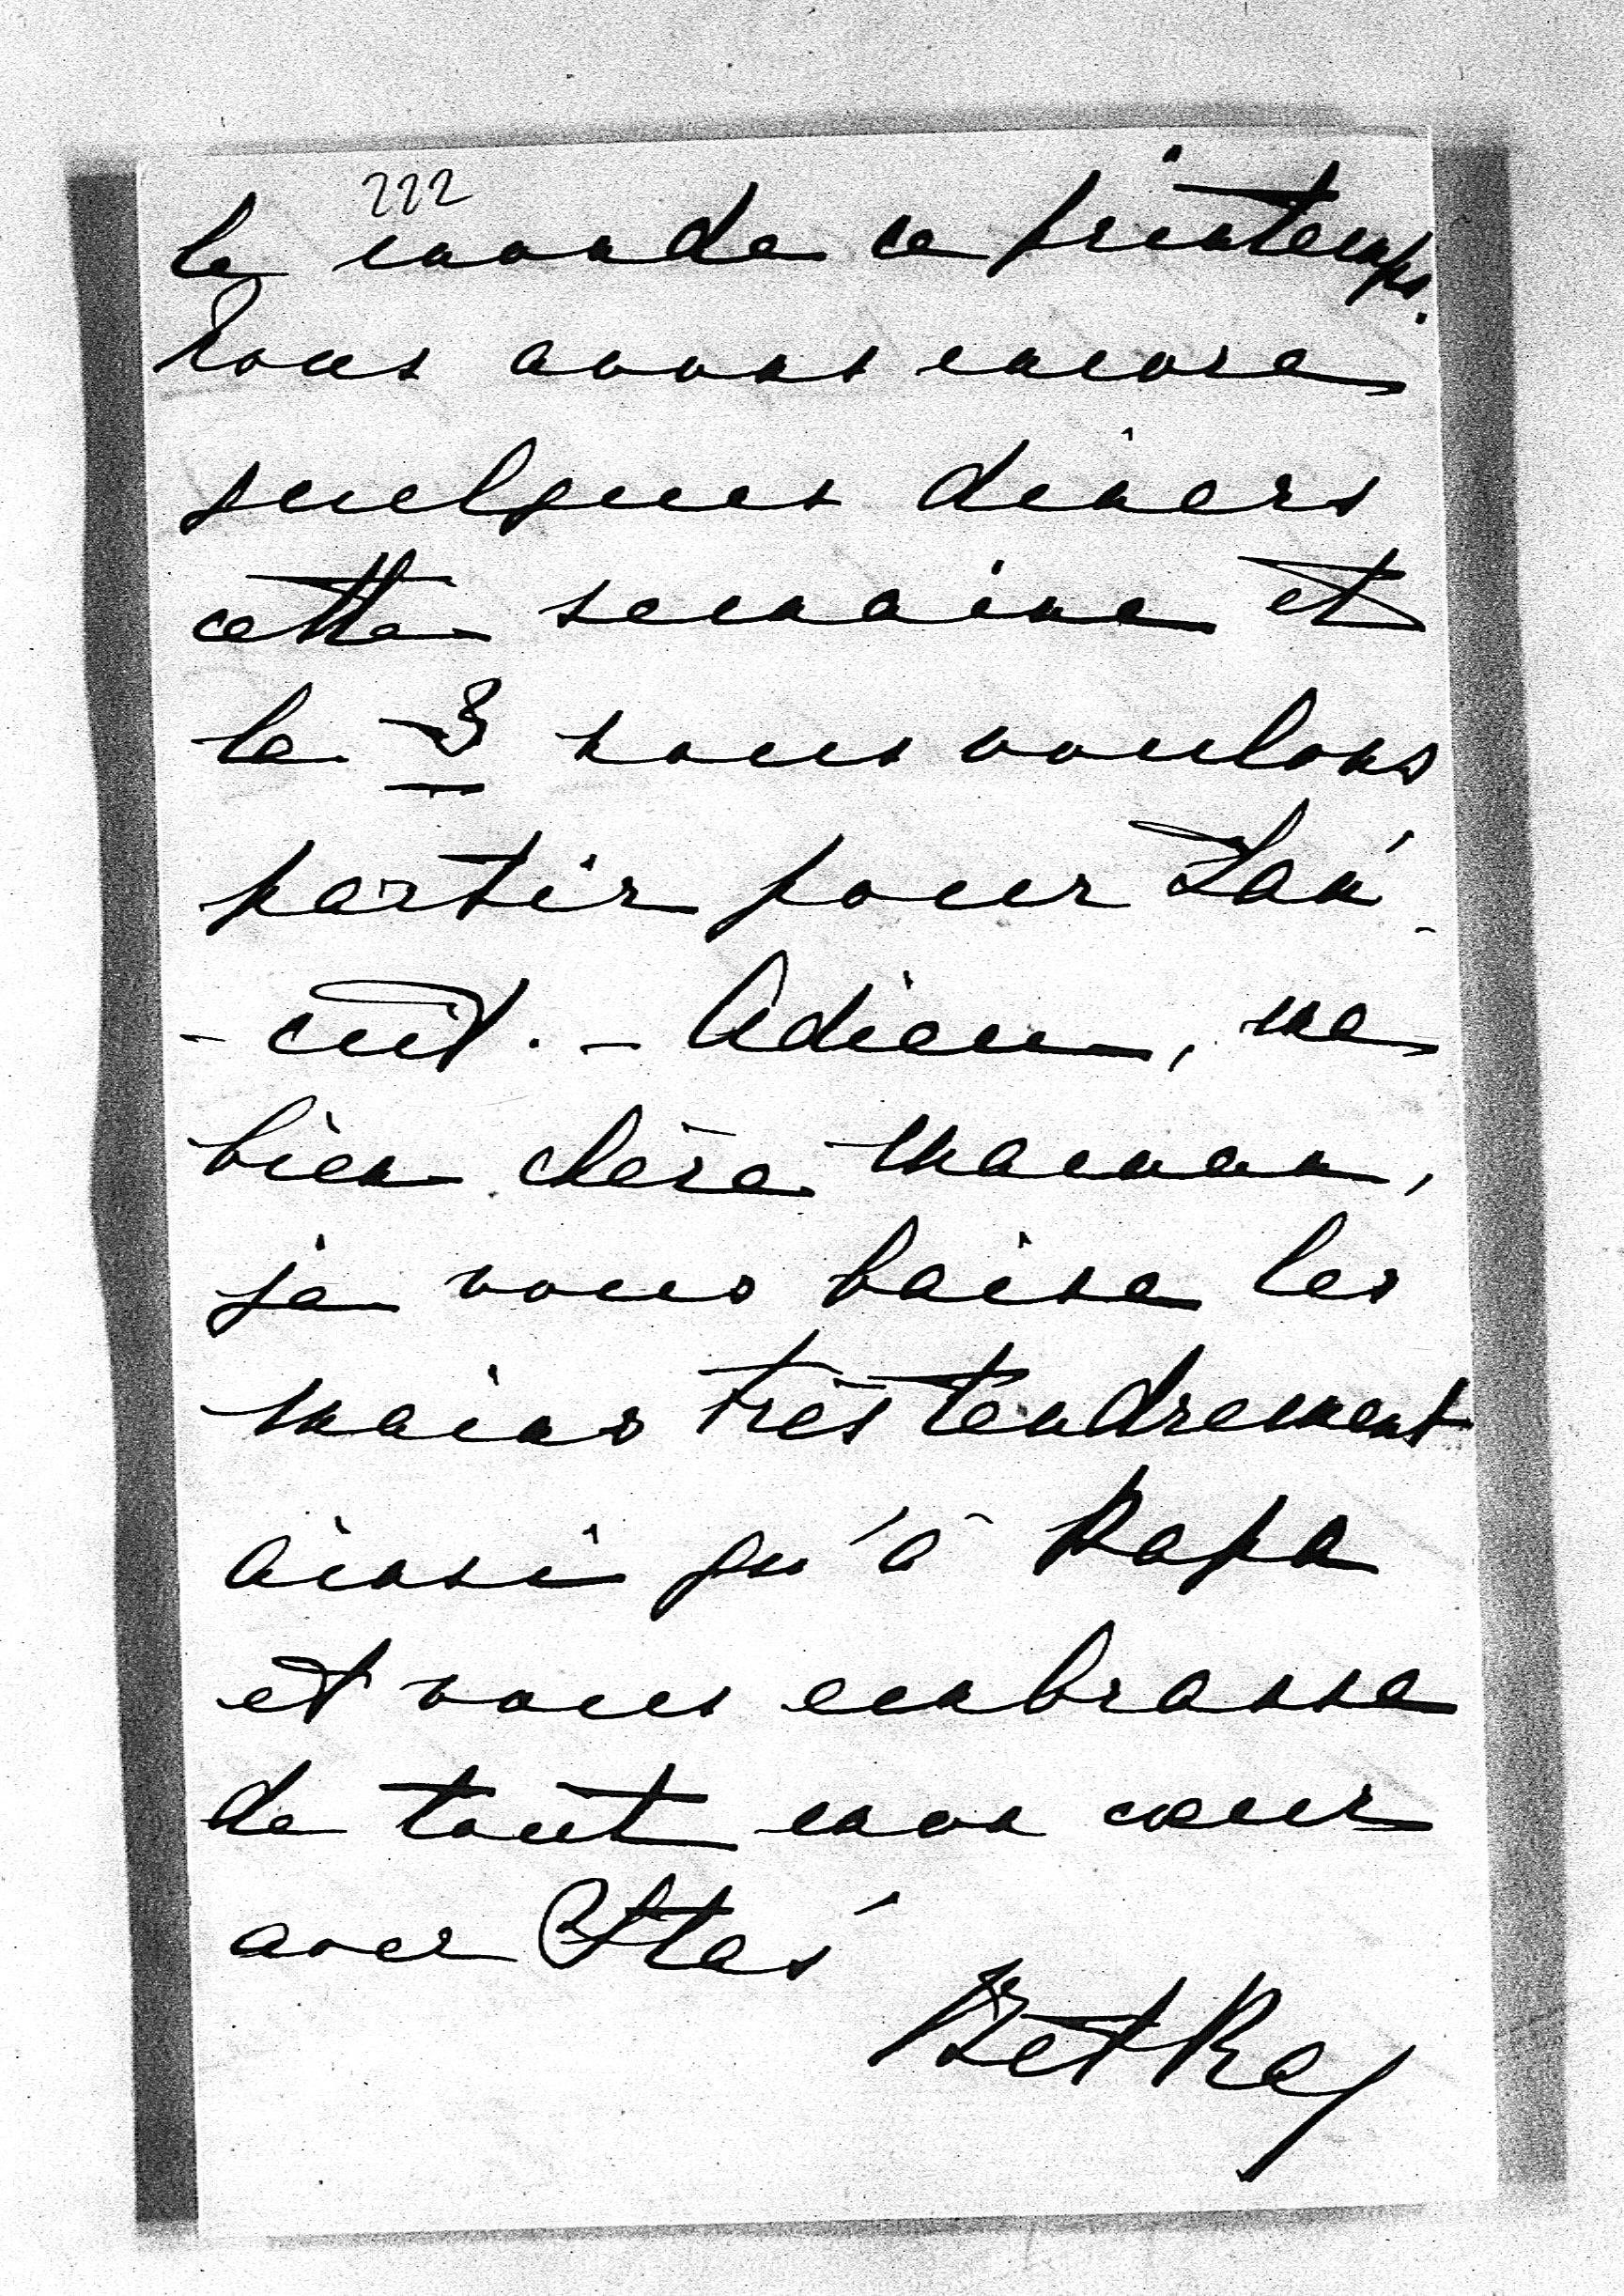 222
le monde ce printemps.
Nous avons encore
quelques diners
cette semaine et
le 3 nous voulons
partir pour Łań-
-cut. - Adieu, ma
bien chère Maman,
je vous baise les
mains très tendrement
ainsi qu'à Papa
et vous embrasse
de tout mon cœur
avec
Betka